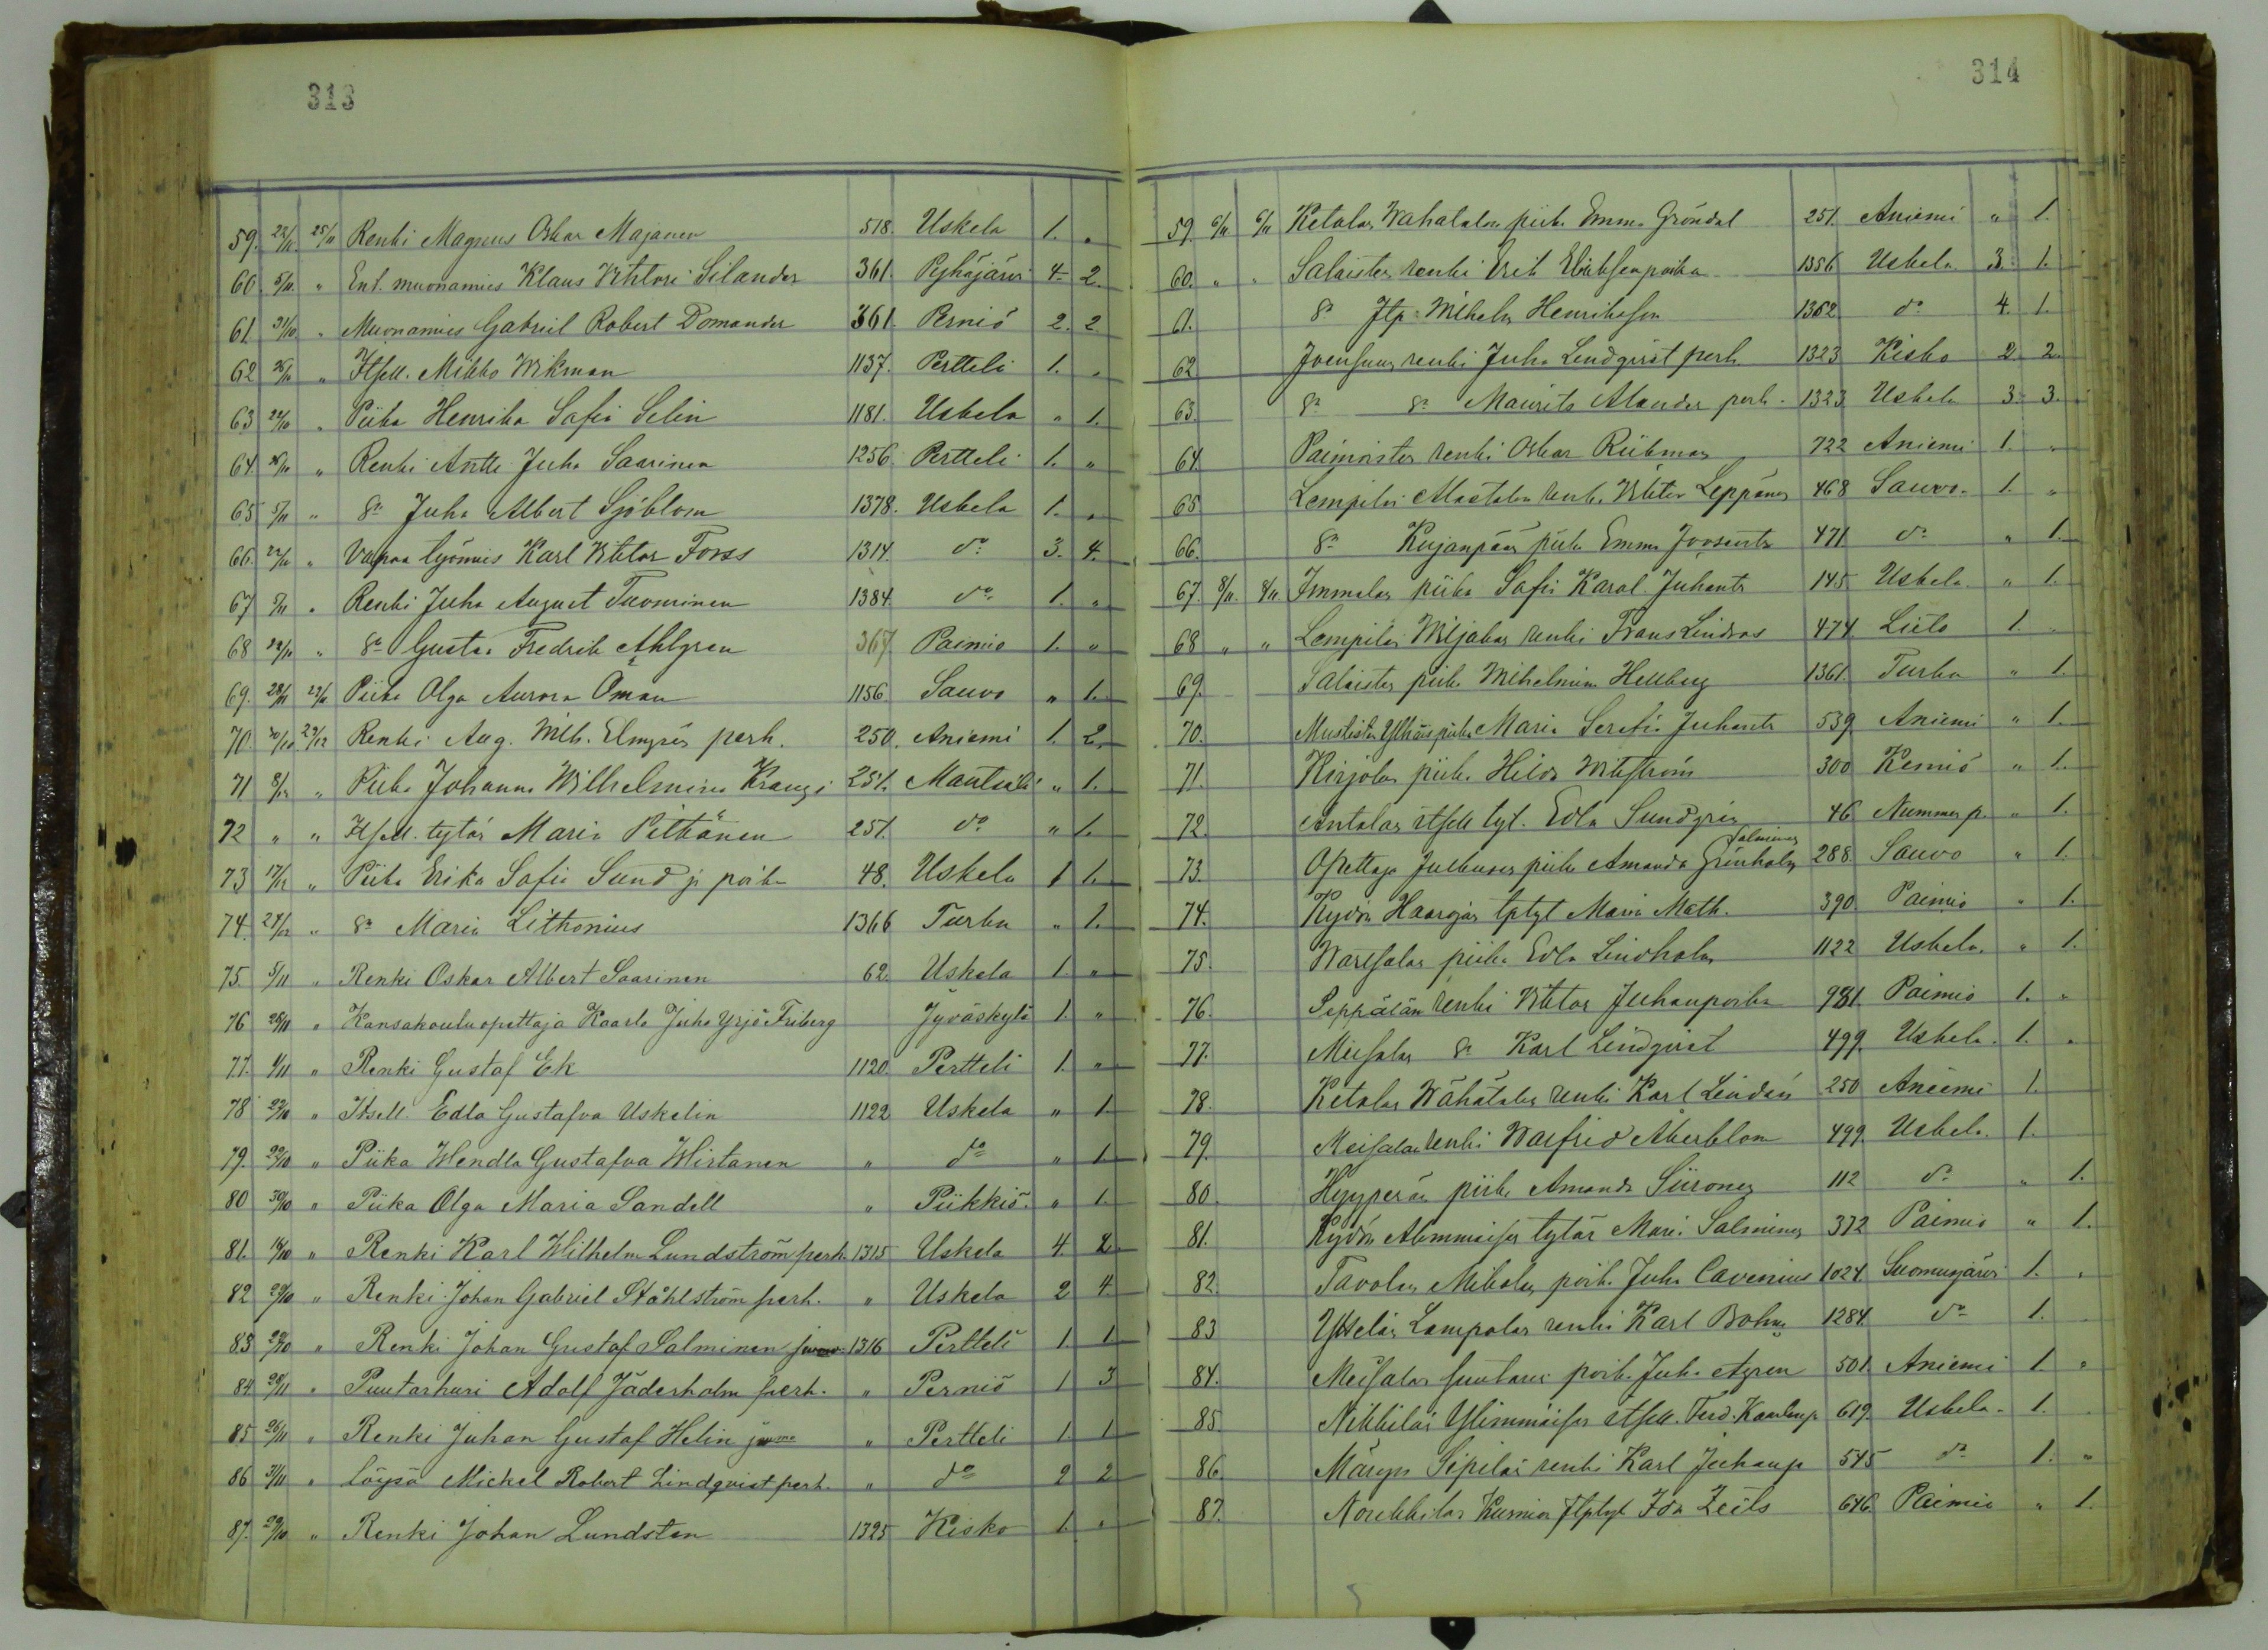 313
59. 22/11. 25/11 Renki Magnus Oskar Majanen 518. Uskela 1. "
60. 5/11. " Ent. muonamies Klaus Viktori Silander 361. Pyhäjärvi 4. 2.
61. 31/10. " Muonamies Gabriel Robert Domander 361. Perniö 2. 2
62 " Itsell. Mikko Wikman 1137. Pertteli 1. "
63 22/10 " Piika Henrika Sofia Selin 1181. Uskela " 1.
64. " Renki Antti Juho Saarinen 1256. Pertteli 1. "
65 5/11 " do Juho Albert Sjöblom 1378. Uskela 1. "
66. 22/10 " Vapaa työmies Karl Viktor Forss 1314. do 3. 4.
67 5/11 " Renki Juho August Tuominen 1384. do 1. "
68 22/10 " do Gustaa Fredrik Ahlgren 367. Paimio 1. "
69. 28/11 29/11 Piika Olga Aurora Öman 1156. Sauvo " 1.
70. 29/12 Renki Aug. Wilh. Elmgrén perh. 250. Aniemi 1. 2.
71 8/12 " Piika Johanna Wilhelmina Krangi 251. Mäntsälä " 1.
72 " " Itsell. tytär Maria Pitkänen 251. do " 1.
73 17/12 " Piika Erika Sofia Sund ja poika 48. Uskela 1 1.
74. 27/12 " do Maria Lithonius 1366 Turku " 1.
75. 5/11 " Renki Oskar Albert Saarinen 62. Uskela 1. "
76 25/11 " Kansakoulunopettaja Kaarlo Juho Yrjö Friberg Jyväskylä 1. "
77. 1/11 " Renki Gustaf Ek 1120. Pertteli 1. "
78 22/10 " Itsell. Edla Gustafva Uskelin 1122 Uskela " 1.
79. 22/10 " Piika Wendla Gustafva Wirtanen " do " 1
80 30/10 " Piika Olga Maria Sandell " Piikkiö. " 1.
81. 18/10 " Renki Karl Wilhelm Lundström perh. 1315 Uskela 4. 2.
82 22/10 " Renki Johan Gabriel Ståhlström perh. " Uskela 2 4.
83 22/10 " Renki Johan Gustaf Salminen 1316 Pertteli 1. 1
84. 28/11 " Puutarhuri Adolf Jäderholm perh. " Perniö 1 3
85 26/11 " Renki Juhan Gustaf Helin " Pertteli 1. 1
86 " Löysä Mickel Robert Lindqvist perh. " do 2 2
87. 22/10 " Renki Johan Lundsten 1325 Kisko 1. "
314
59. 6/11 6/11 Ketolan Wähätalon piika Emma Gröndal 251. Aniemi " 1.
60. " " Salaisten renki Erik Erikksenpoika 1356 Uskela. 3. 1.
61. do Itp Wilhelm Henriksson 1362. do 4. 1.
62 Joensuun renki Juho Lindqvist perh. 1323 Kisko 2. 2.
63. do do Maurits Alander perh. 1323 Uskela 3. 3.
64. Paimisten renki Oskar Riikman 722 Aniemi 1. "
65 Lempilän Alastalon renki Viktor Leppänen 468 Sauvo. 1. "
66. do Kujanpään piika Emma Joosentr 471. do " 1.
67. 8/11. 8/11 Immalan piika Sofia Karol. Juhantr 145 Uskela " 1.
68 " " Lempilän Wiljakan renki Frans Lindroos 474 Lieto 1 "
69. Salaisten piika Wilhelmina Hellberg 1361. Turku " 1.
70. Mustiston Ylhäis piika Maria Serafia Juhantr 539 Aniemi " 1.
71. Kirjolan piika Hilda Witström 300 Kemiö " 1.
72. Antolan itsell tyt. Edla Sundgrén 46 Nummen p. " 1.
73. Opettaja Juliuksen piika Amanda Grünholm Salminen 288. Sauvo " 1.
74. Kydön Haarojan tptyt Maria Math. 390. Paimio " 1.
75. Wartsalan piika Edla Lindholm 1122 Uskela. " 1.
76. Seppälän renki Viktor Juhanpoika 981. Paimio 1. "
77. Meisalan do Karl Lindqvist 499. Uskela. 1. "
78. Ketolan Wähätalon renki Karl Lindén 250 Aniemi 1.
79. Meisalan renki Walfrid Åkerblom 499. Uskela. 1.
80. Hyyperän piika Amanda Siironen 112 do " 1.
81. Kydön Alimmaisen tytär Maria Salminen 372 Paimio " 1.
82. Tavolan Mikolan poik. Juho Cavenius 1024. Suomusjärvi 1. "
83 Ylsselän Lampolan renki Karl Bohm 1284. do 1.
84. Meisalan suutarin poik. Juho Ågren 501. Aniemi 1. "
85. Nikkilän Ylimmäisen itsell. Ferd. Kaarlenp. 619. Uskela. 1.
86. Märyn Sipilän renki Karl Juhanp 545 do 1. "
87. Nourkkilan Kumion Itptyt Ida Zeils 646. Paimio " 1.